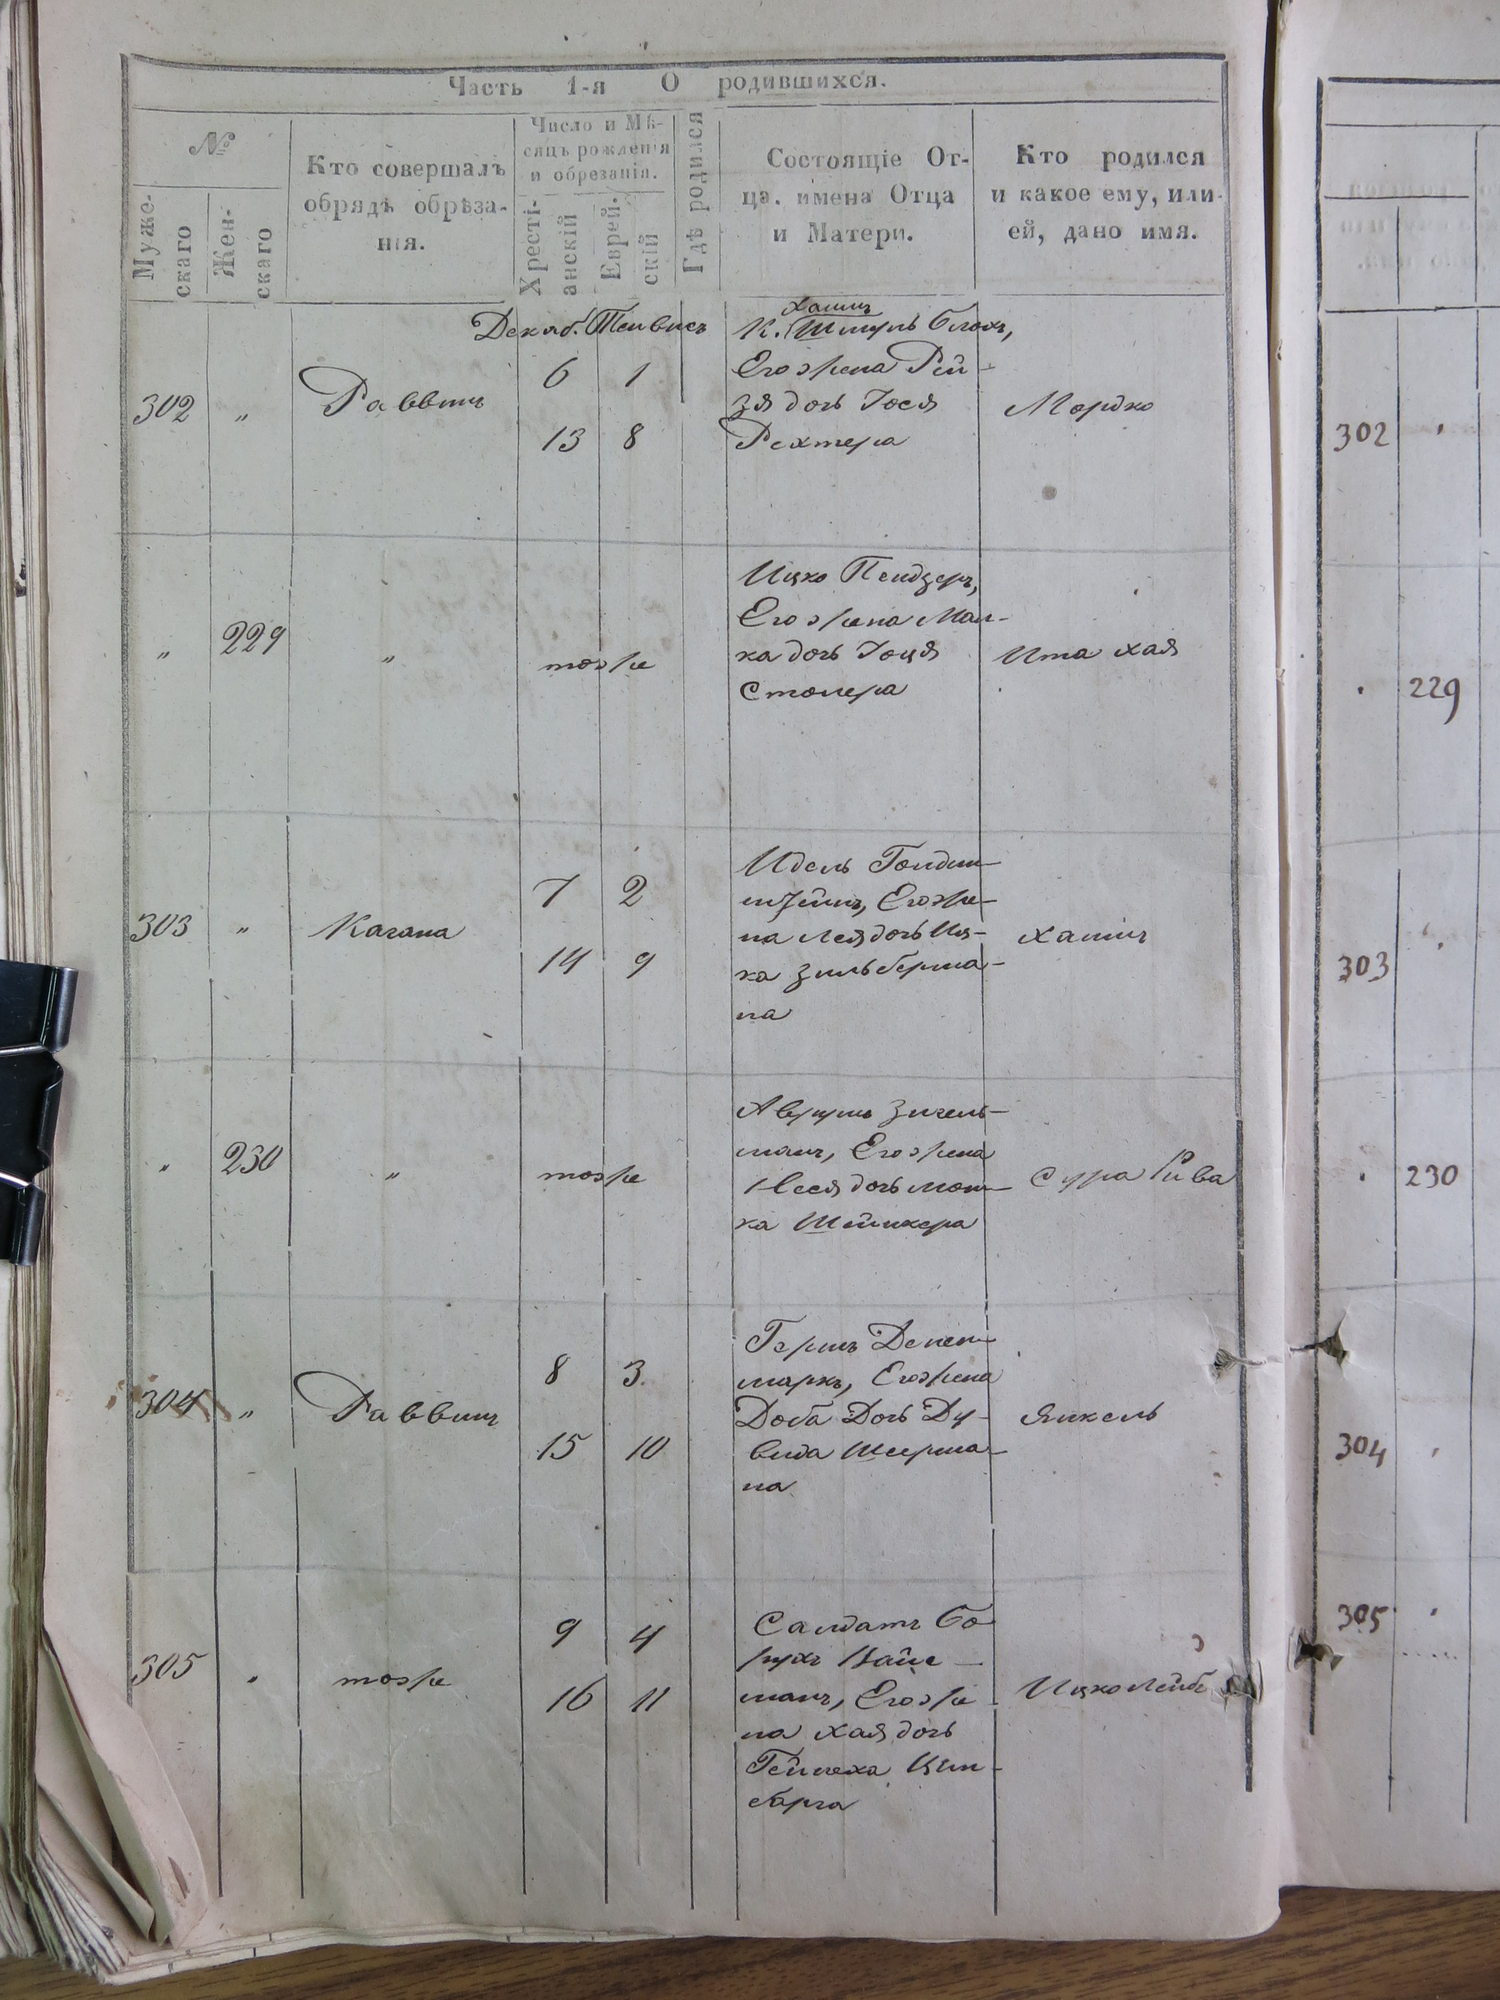 Часть 1-я О родившихся.
№
Муже-
скаго
Жен-
скаго
Кто совершалъ
обрядъ обрѣза-
нія.
Число и Мѣ-
сяцъ рожденія
и обрезанія.
Хресті-
анскій
Еврей-
скій
Гдѣ родился
Состоящіе От-
ца, имена Отца
и Матери.
Кто родился
и какое ему, или
ей, дано имя.
Декаб. Тейвисъ
302 „ Раввинъ
6 1
13 8
Хаимъ
К. Шмуль Блохъ,
Его жена Рей-
зя дочь Іося
Рехтера
Мордко
„ 229 „ тоже
Ицко Пендзеръ,
Его жена Мал-
ка дочь Іоця
Столера
Ита Хая
303 „ Кагана
7 2
14 9
Идель Голдин-
штейнъ, Его же-
на Лея дочь Иц-
ка Зильберма-
на
Хаимъ
„ 230 „ тоже
Аврумъ Зигель-
манъ, Его жена
Нося дочь Мош-
ка Шейнкера
Сура Рива
304 „ Раввинъ
8 3
15 10
Гершъ Денен-
маркъ, Его жена
Доба Дочь Ду-
вида Шерма-
на
Янкель
305 „ тоже
9 4
16 11
Салдатъ Бо
рухъ Вайс-
манъ, Его же-
на Хая дочь
Гейнеха Цин-
барга
Ицко Лейбъ
302
229
303
230
304
305